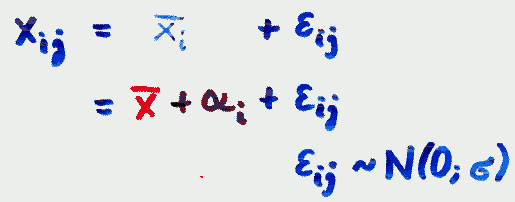 x_ij = x̄_i + ε_ij
= x̄ + α_i + ε_ij
ε_ij ~ N(0; σ)